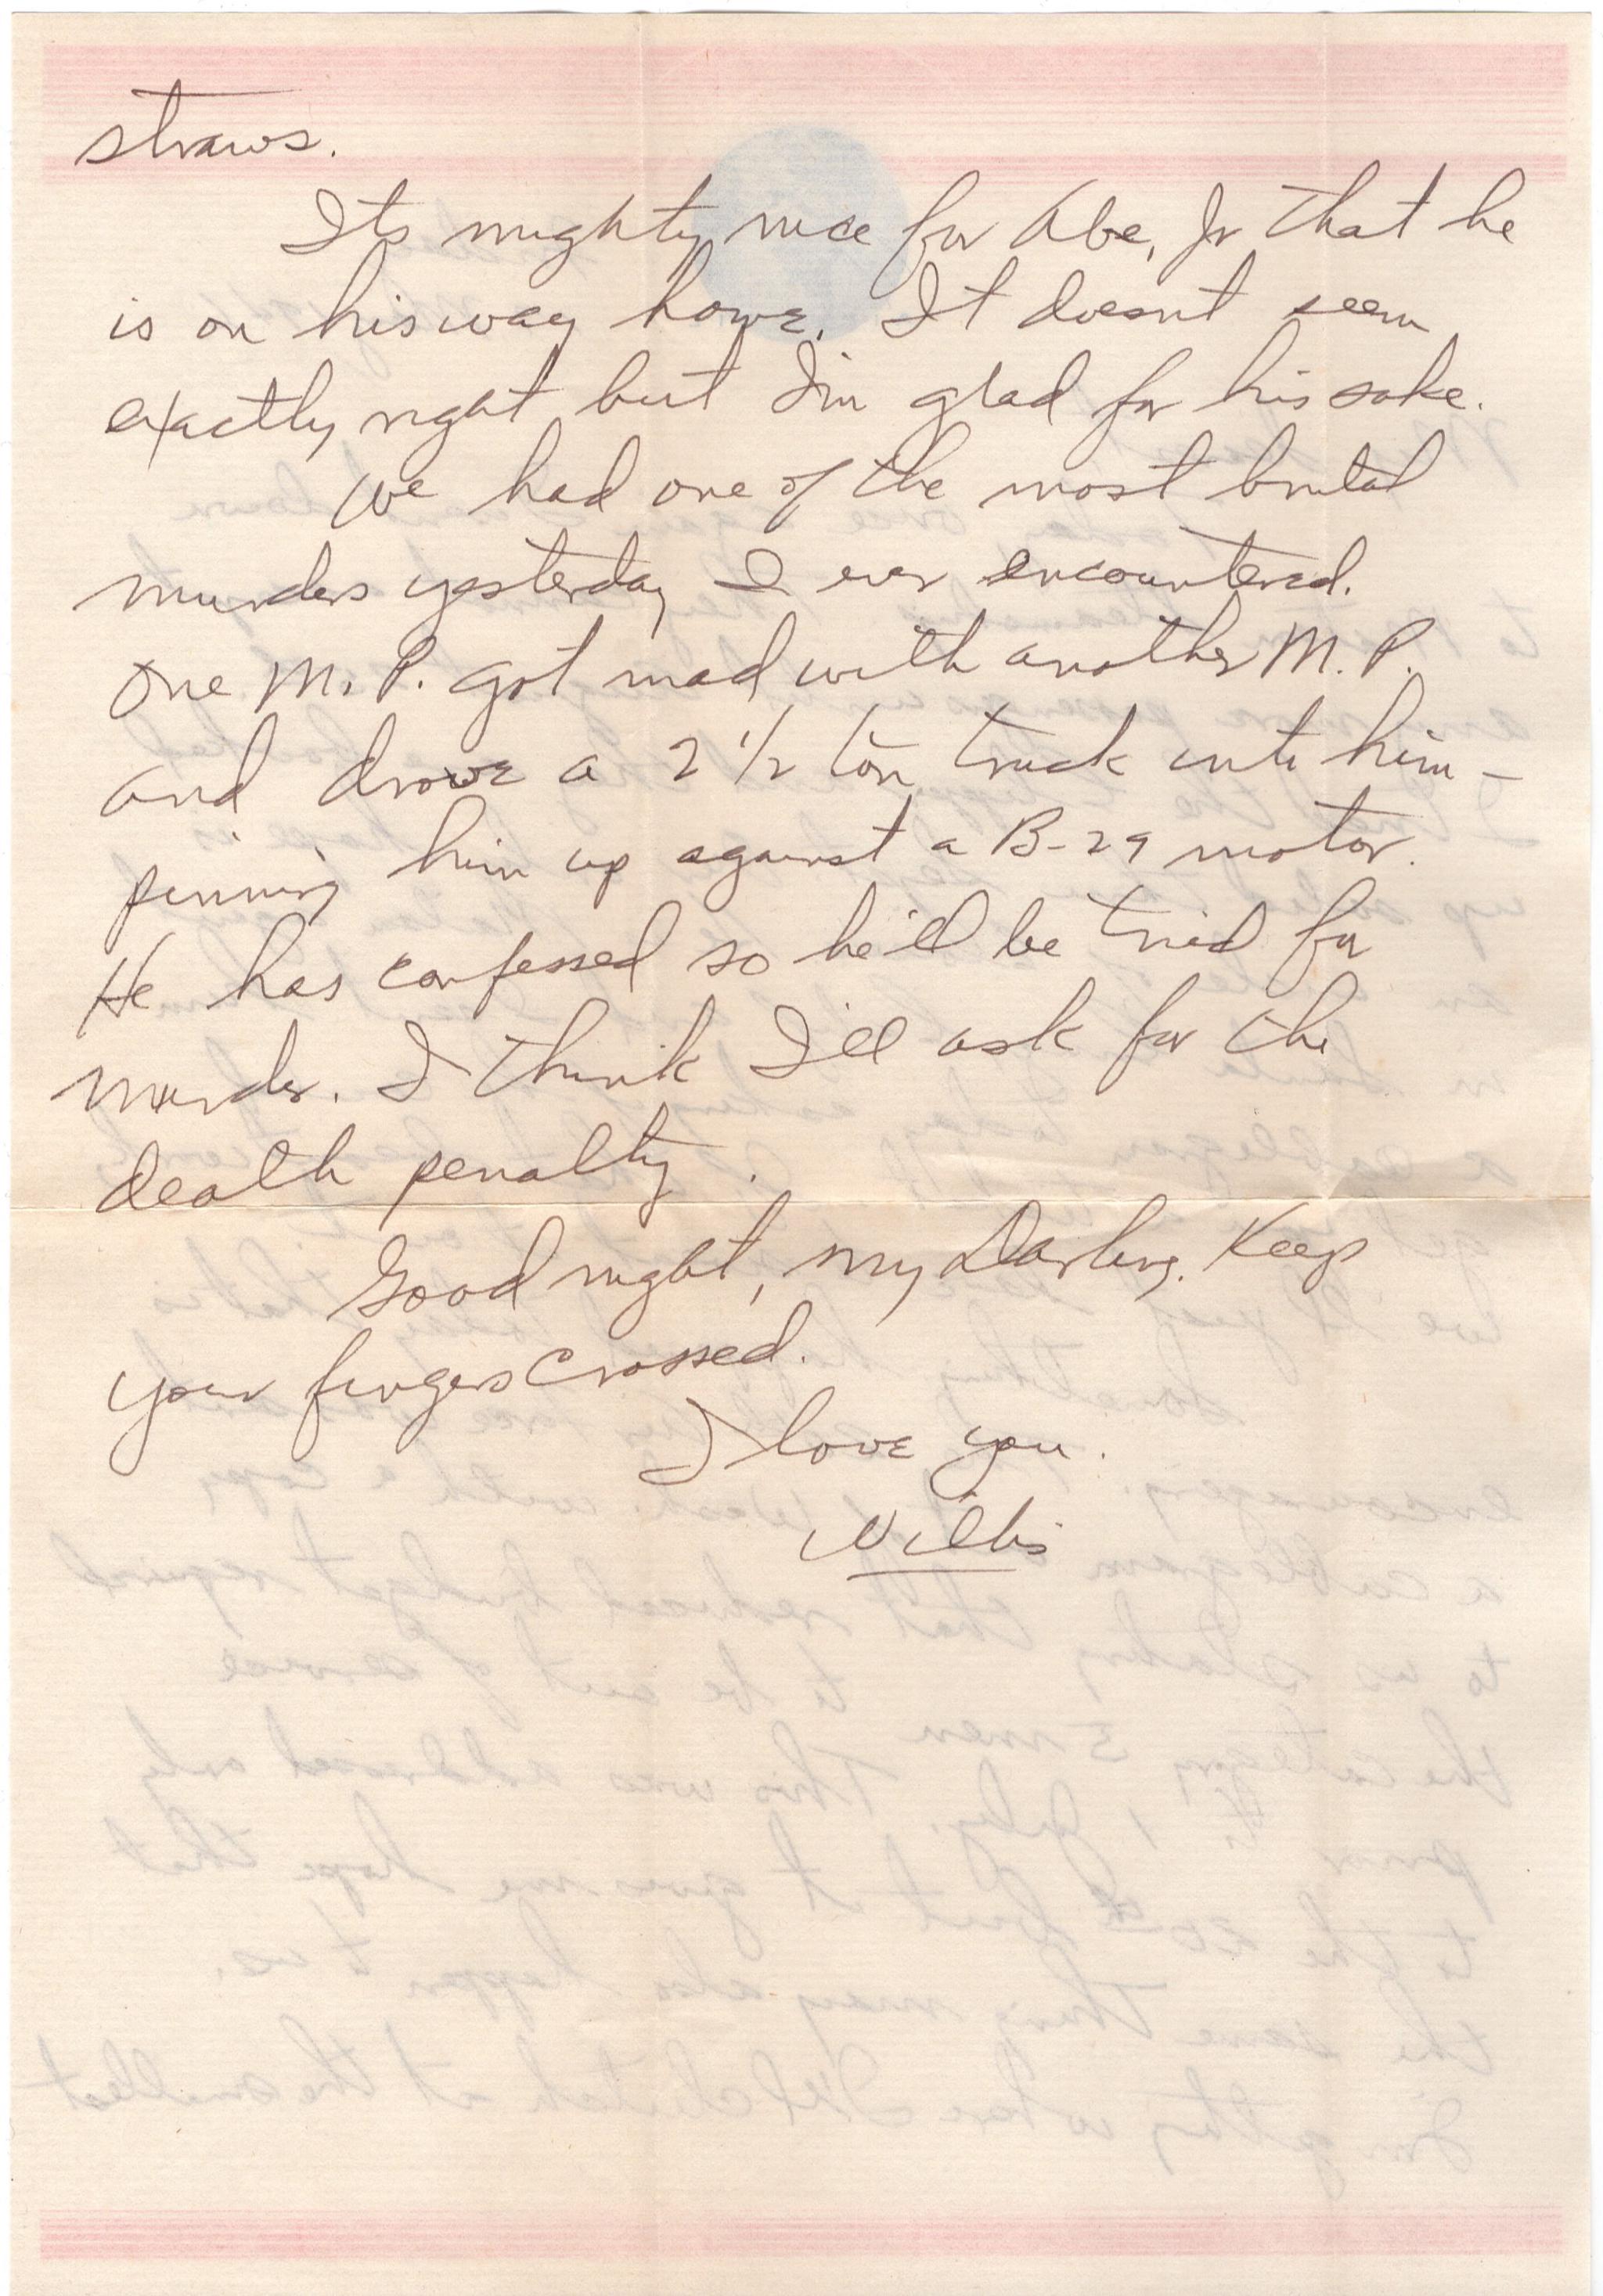 straws.
Its mighty nice for Abe, Jr that he
is on his way home. It doesnt seem
exactly right but I'm glad for his sake.
We had one of the most brutal
murders yesterday I ever encountered.
One M.P. got mad with another M.P.
and drove a 2 1/2 ton truck into him –
pinning him up against a B-29 motor.
He has confessed so he'll be tried for
murder. I think I'll ask for the
death penalty.
Good night, my Darling. Keep
your fingers crossed.
I love you.
Willis